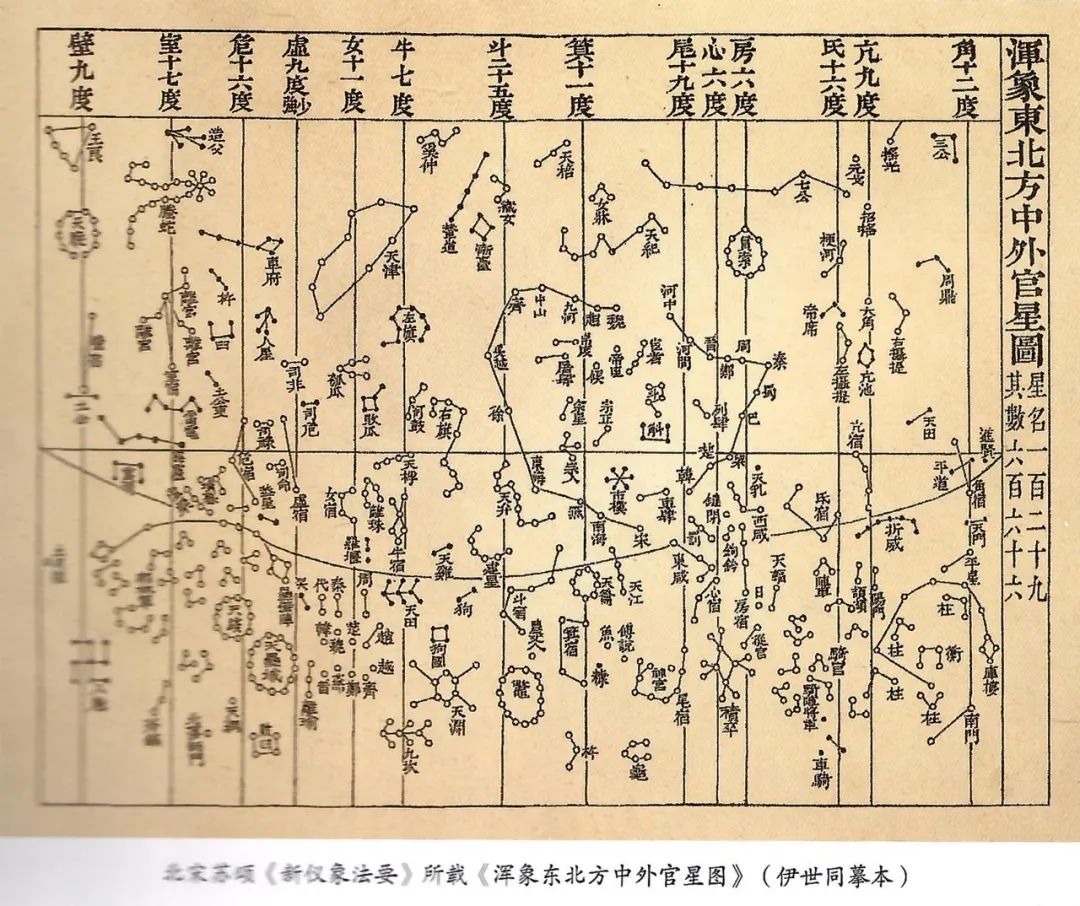 渾象東北方中外官星圖
星名一百二十九
其數六百六十六
角十二度
亢九度
氐十六度
房六度
心六度
尾十九度
箕十一度
斗二十五度
牛七度
女十一度
虛九度少強
危十六度
室十七度
壁九度
三公
周鼎
右攝提
天田
進賢
平道
角宿
天門
平星
柱
衡
庫樓
柱
柱
柱
南門
搖光
元戈
招搖
大角
亢池
亢宿
折威
陽門
頓頑
梗河
帝席
左攝提
氐宿
陣車
騎官
車騎
七公
貫索
周
秦
蜀
巴
梁
楚
天乳
西咸
天輻
日
從官
房宿
鍵閉
鉤鈐
罰
東咸
心宿
積卒
河中
河間
晉
鄭
列肆
韓
車肆
宋
南海
燕
東海
徐
吳越
齊
中山
九河
趙
魏
天紀
女牀
天棓
宦者
帝座
候
斛
屠肆
宗正
宗人
市樓
天江
天籥
傅說
魚
神宮
尾宿
龜
箕宿
糠
杵
農丈人
鼈
斗宿
建星
天弁
織女
漸臺
輦道
奚仲
天津
左旗
右旗
河鼓
天桴
牛宿
天雞
狗
狗國
天田
天淵
九坎
羅堰
離珠
女宿
敗瓜
瓠瓜
周
秦
代
趙
越
齊
鄭
楚
魏
韓
晉
燕
離瑜
司非
司危
司祿
司命
虛宿
哭
天壘城
敗臼
車府
人星
杵
臼
危宿
造父
騰蛇
離宮
離宮
離宮
室宿
土公吏
雷電
王良
天廄
天錢
天綱
北落師門
北宋苏颂《新仪象法要》所载《浑象东北方中外官星图》（伊世同摹本）